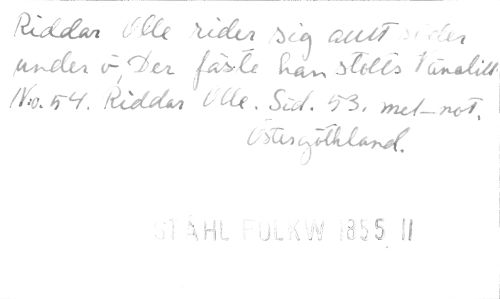 Riddar Olle rider sig autt söder
under ö, Der fäste han stolts Vänelill
No. 54. Riddar Olle. Sid. 53. met not.
Östergöthland.
STÅHL FOLKW 1855 II